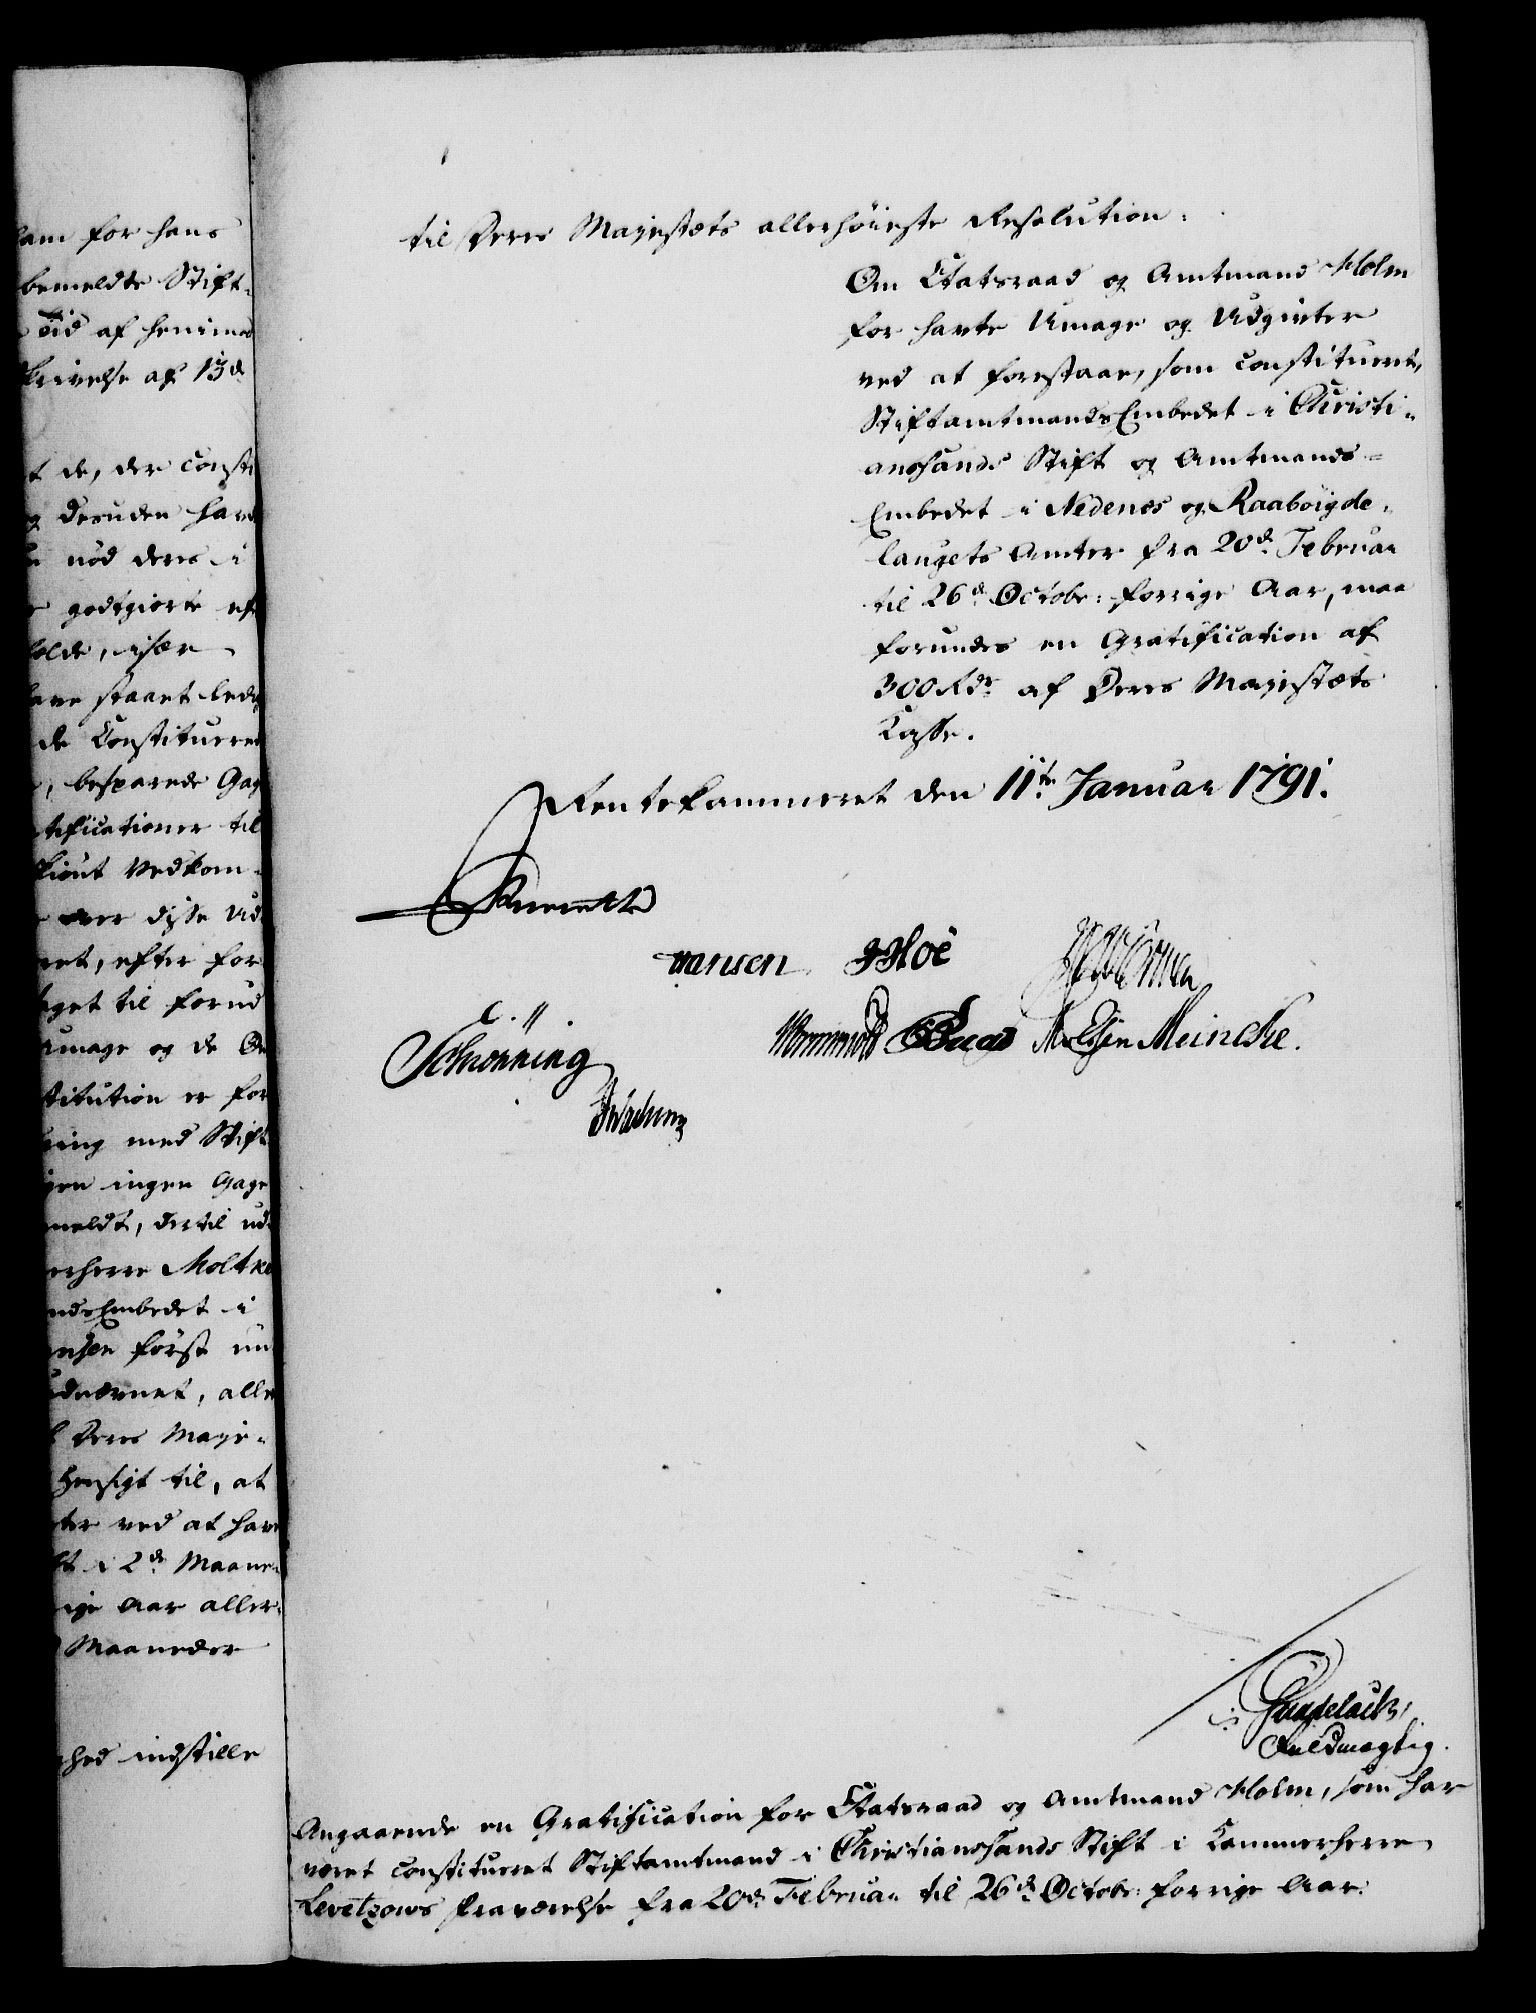 ham for hans
bemeldte Stift-
Tid af henimod
skrivelse af 13de
at de, der consti
og desuden havt
nød deres i
godtgiorte eft
holde, især
have staaet ledi
de Constituere
, besparede Gag
tificationer til
skiønt Vedkom-
over disse Ud
ret, efter for
taget til forud
Umage og de
stitution er for
ning med Stift
gen ingen Gage
meldt, dertil ud-
merherre Moltke
andsEmbedet i
først nu
udnævnet, alle
Deres Maje-
Hensigt til, at
ter ved at have
i 2de Maane-
rige Aar aller-
Maaneder
hed indstille
til Deres Majestæts allerhøieste Resolution:
Om Etatsraad og Amtmand Holm
for havte Umage og Udgivter
ved at forestaae, som constitueret,
StiftamtmandsEmbedet i Christi-
ansands Stift og Amtmands-
Embedet i Nedenes og Raabøigde-
laugets Amter fra 20de Februar
til 26de Octobr: forrige Aar, maa
forundes en Gratification af
300 Rdr af Deres Majestæts
Casse.
Rentekammeret den 11te Januar 1791.
Hansen Hoë
Schrønning Wormskiold Meincke.
Fuldmægtig.
Angaaende en Gratification for Etatsraad og Amtmand Holm, som har
været constitueret Stiftamtmand i Christiansands Stift i Kammerherre
Levetzows fraværelse fra 20de Februar til 26de Octobr: forrige Aar.